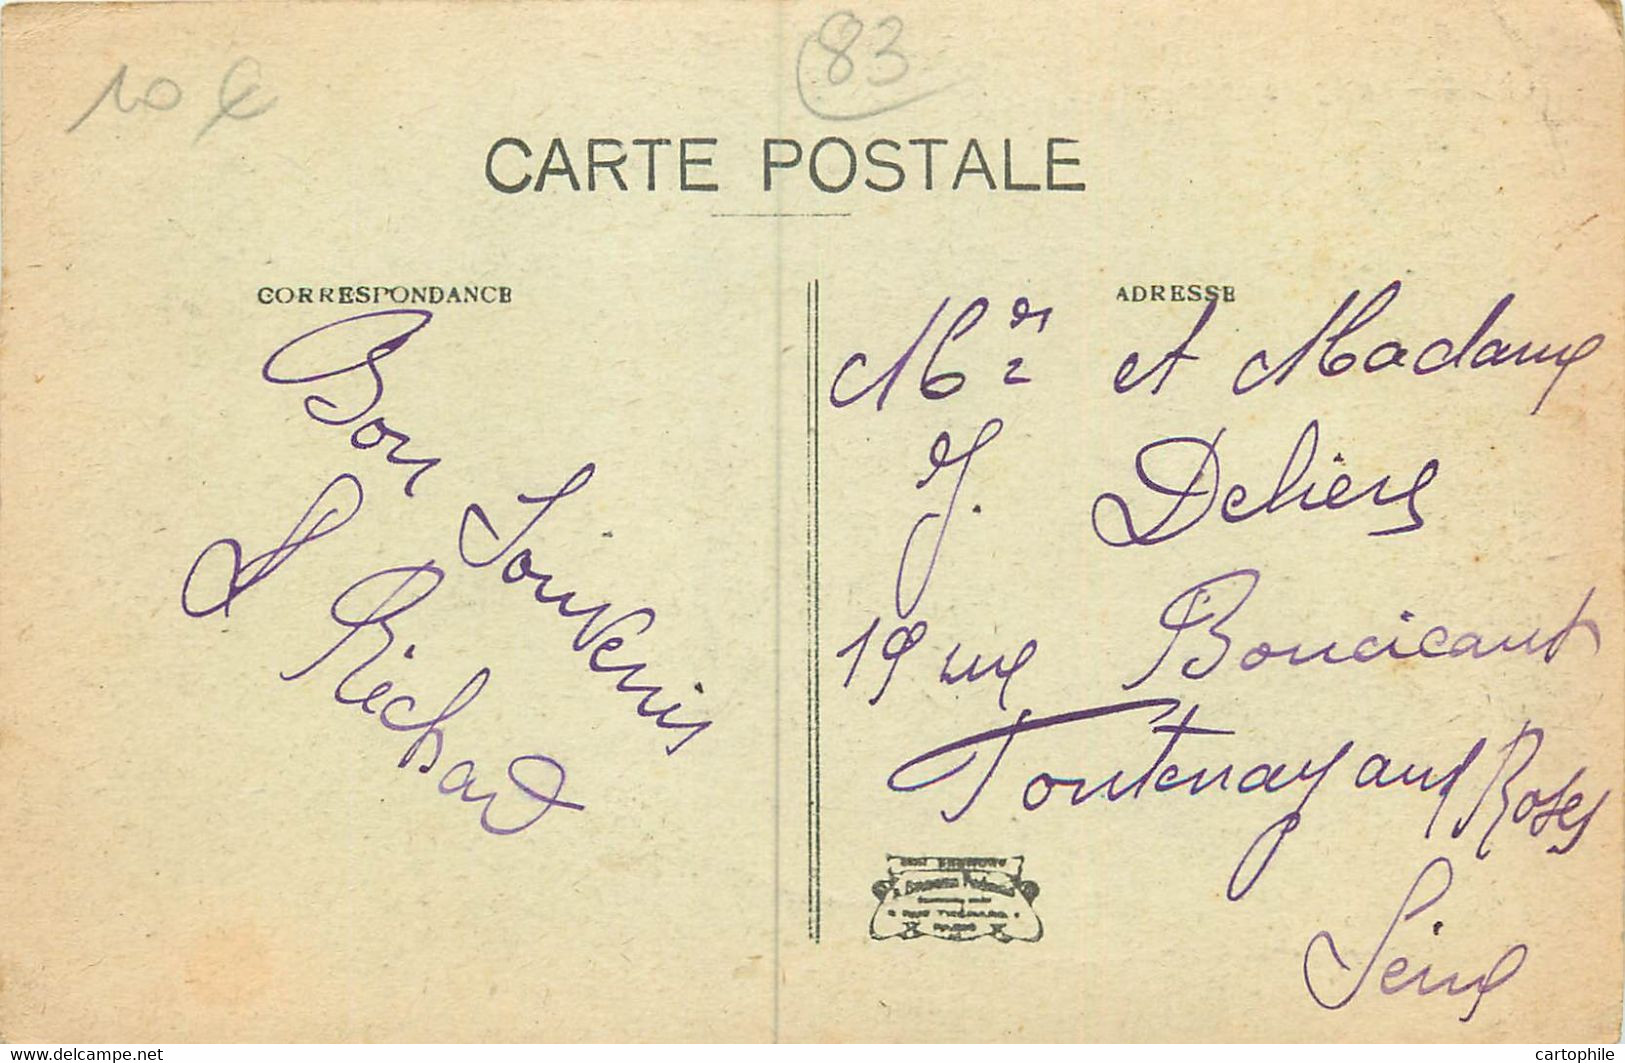 10 €
83
CARTE POSTALE
CORRESPONDANCE
Bon Souvenir
Richard
ADRESSE
Mr et Madame
J. Deliers
19 rue Boucicaut
Fontenay aux Roses
Seine
www.delcampe.net
cartophile